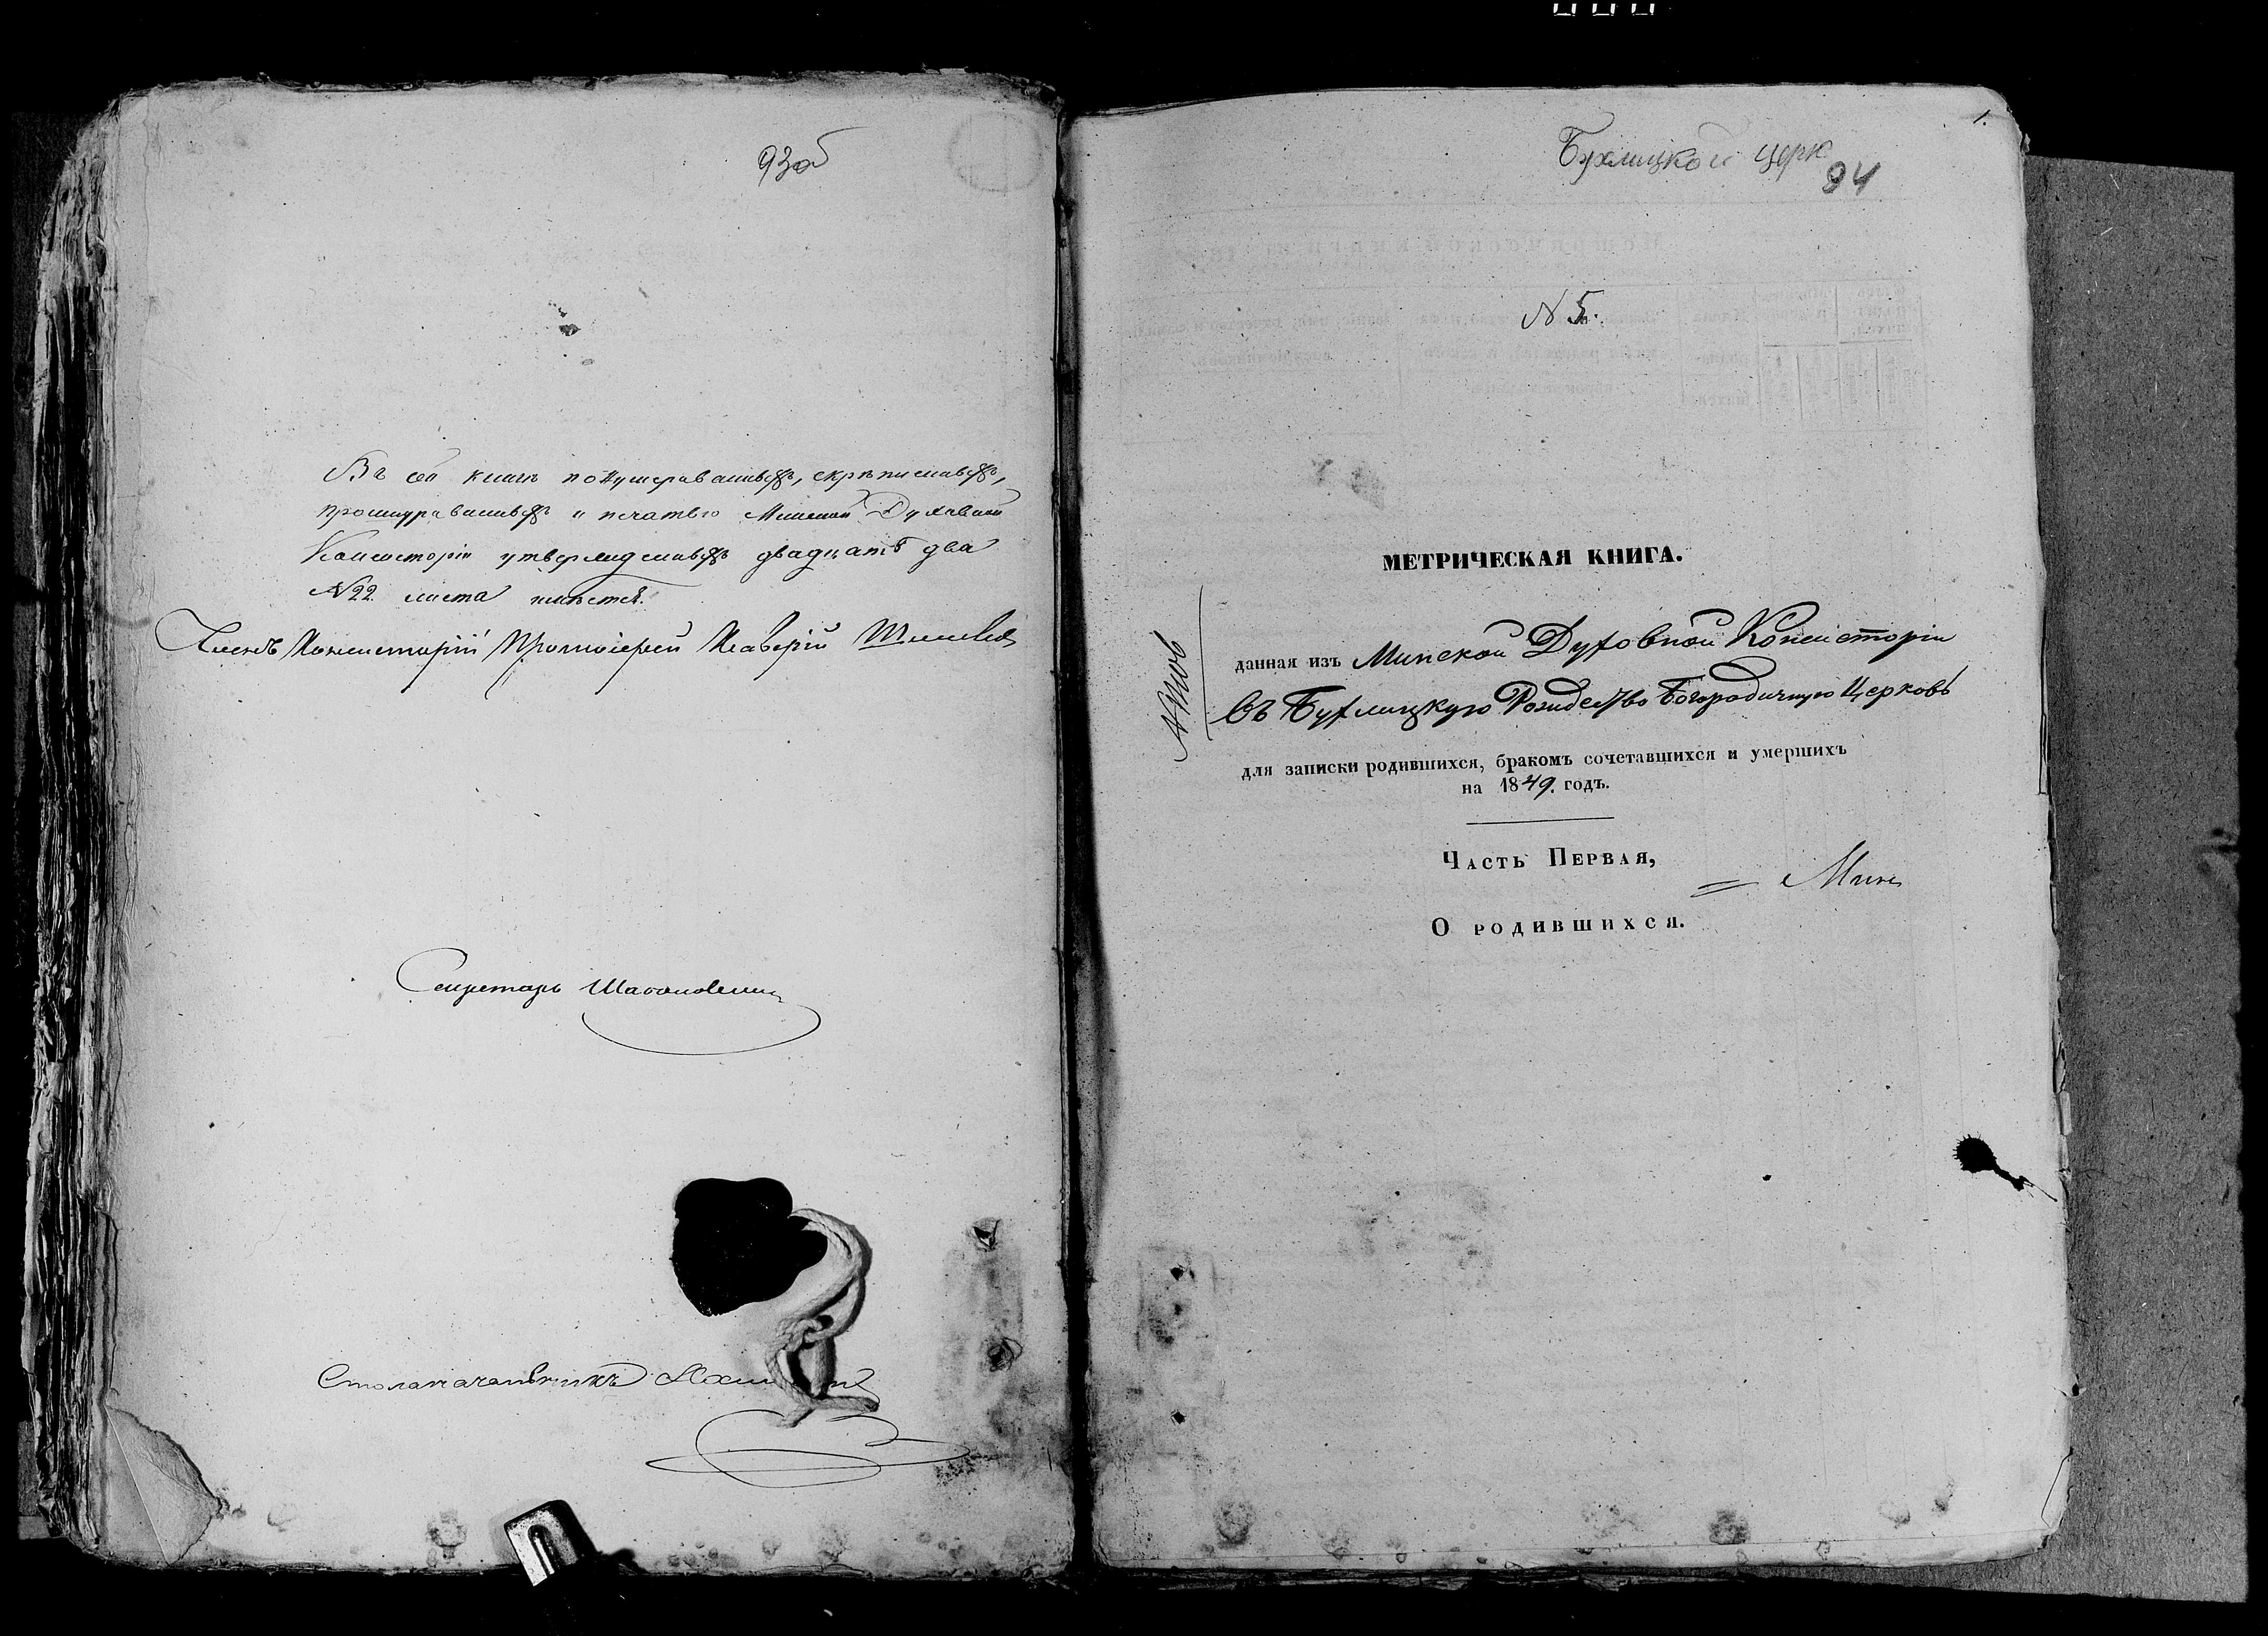 93об
Въ сей книгѣ понумерованныхъ, скрѣпленныхъ,
прошнурованныхъ и печатью Минской Духовной
Консисторіи утвержденныхъ двадцать два
N22. листа имѣется.
Членъ Консисторіи Протоіерей
Секретарь
Столоначальникъ
1.
Бухлицкой церк
94
N 5.
МЕТРИЧЕСКАЯ КНИГА.
данная изъ Минской Духовной Консисторіи
въ Бухлицкую Рождество Богородичную Церковь
для записки родившихся, бракомъ сочетавшихся и умершихъ
на 1849. годъ.
Часть Первая,
О родившихся.